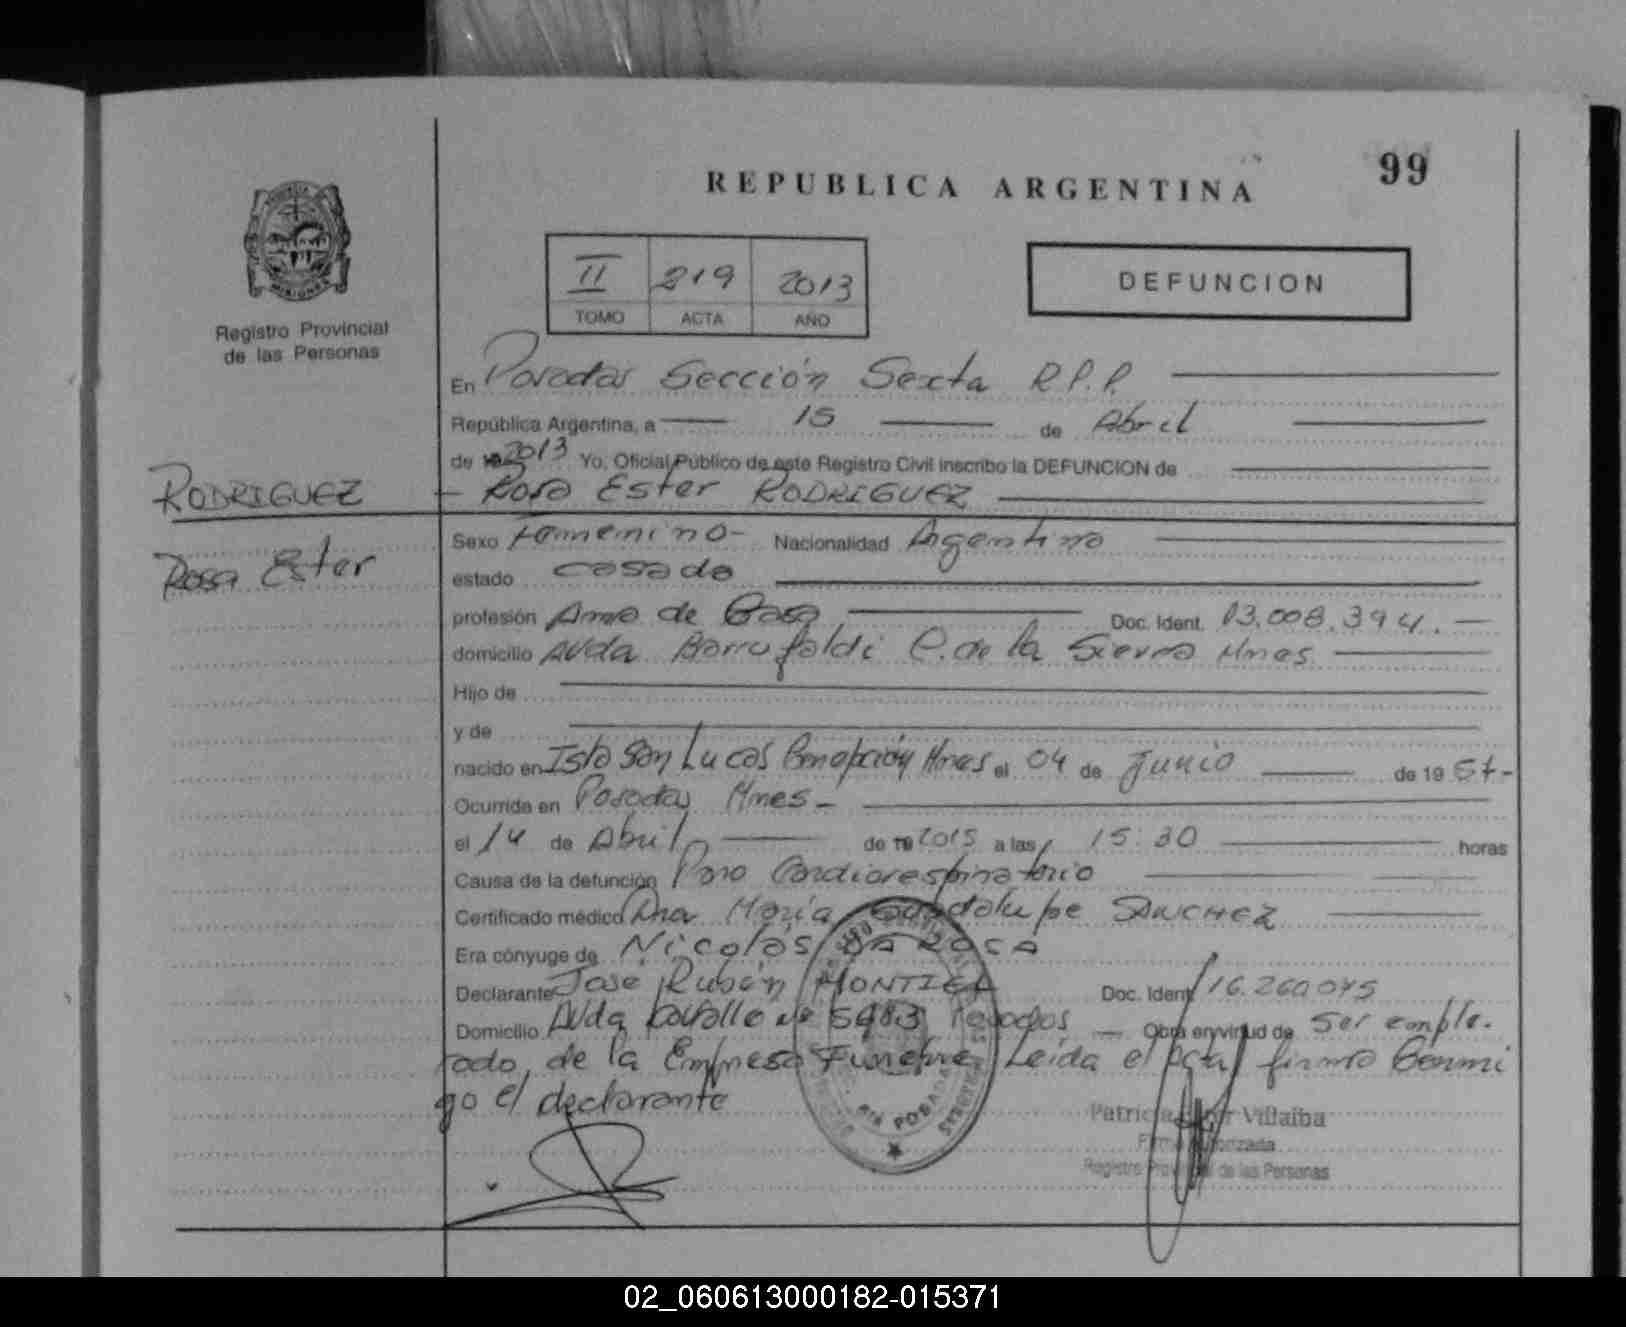 99
REPUBLICA ARGENTINA
Registro Provincial
de las Personas
II 219 2013
TOMO ACTA AÑO
DEFUNCION
En Posadas Sección Sexta R.P.P.
República Argentina, a 15 de Abril
de 2013 Yo, Oficial Público de este Registro Civil inscribo la DEFUNCION de
RODRIGUEZ
Rosa Ester
Rosa Ester RODRIGUEZ
Sexo Femenino - Nacionalidad Argentina
estado casada
profesión Ama de Casa Doc. Ident. 13.008.394.
domicilio Avda Barrufaldi C. de la Sierra Mnes
Hijo de
y de
nacido en Isla San Lucas Concepción Mnes el 04 de Junio de 19
Ocurrida en Posadas Mnes -
el 14 de Abril de 2013 a las 15:30 horas
Causa de la defunción Paro Cardiorespiratorio
Certificado médico Dra María Guadalupe SANCHEZ
Era cónyuge de Nicolás DA ROSA
Declarante José Rubén MONTIEL Doc. Ident 16.260.045
Domicilio Avda Lavalle Nº 5983 Posadas - Obra en virtud de ser emple-
ado de la Empresa Funebre Leida el Acta firma Conmi
go el declarante
POSADAS
Patricia Villalba
Firma Autorizada
Registro Provincial de las Personas
02_060613000182-015371